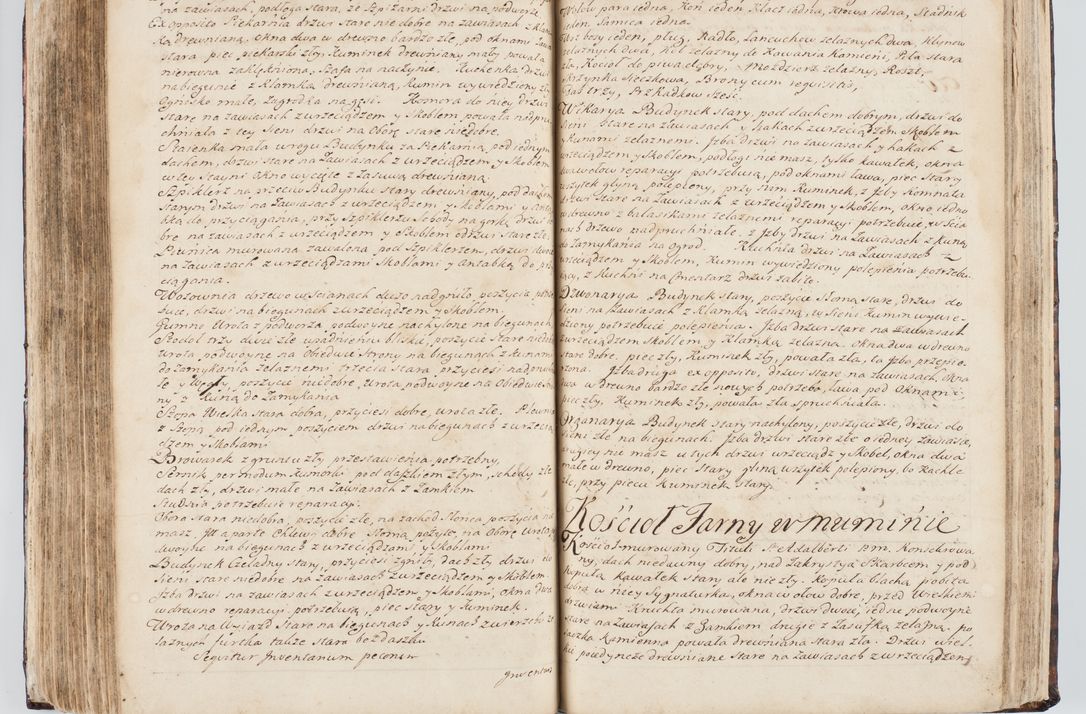 na zawiasach, podłoga stara, ze Szpizarni drzwi na podworze
Ex opposito Piekarnia drzwi stare nie dobre na zawiasach z Klam
ką drewnianą, okna dwa w drewno bardzo złe, pod oknami ława
stara piec piekarski zły Kuminek drewniany mały powała
nierowna zaklęśniona, Szafa na naczynie. Kuchenka drzwi
na biegunie z Klamką drewnianą, Kumin wywiedziony zły
Ognisko małe, Zagrodka na gęsi. Komora do niey drzwi
stare na zawiasach z wrzeciądzem y Skoblem powała nadpru
chniała z tey Sieni drzwi na Oborę stare niedobre.
Stasienka mała w rogu Budynku za Piekarnią, pod iednym
dachem, drzwi stare na Zawiasach z wrzeciądzem y Skoblem
w tey Stayni okno wycięte z Zasuwą drewnianą.
Szpiklerz na przeciw Budynku stary drewniany, pod dachem
starym drzwi na Zawiasach z wrzeciądzem y Skoblami y Anta
bką do przyciągania, przy Szpiklerzu Schody na gorkę drzwi
bre na zawiasach z wrzeciądzem y Skoblem odrzwi stare złe
Piwnica murowana zawalona pod Szpiklerzem, drzwi dwoie
na Zawiasach z wrzeciądzami Skoblami y Antabką do przy
ciągania.
Wozownia drzewo w Ścianach dużo nadgniło poszycia potrze
buie, drzwi na biegunach z wrzeciądzem y Skoblem.
Gumno Wrota z podworza podwoyne nachylone na biegunach
Stodoł trzy dwie złe
wrota podwoyne na Obiedwie strony na biegunach z Kunami
do zamykania żelaznemi trzecia stara, przyciesi nadgniłe
złe y poszycie niedobre, wrota podwoyne na Obiedwie stro
ny z Kuną do Zamykania
Szopa Wielka stara dobra, przyciesi dobre, wrota złe. Plewnia
z Szopą pod iednym poszyciem drzwi na biegunach z wrzecią
dzem y Skoblami
Browarek z gruntu zły przestawienia potrzebny,
Sernik per modum Komorki pod daszkiem złym, schody złe
dach zły, drzwi małe na Zawiasach z Zamkiem
Studnia potrzebuie reparacyi.
Obora stara niedobra, poszycie złe, na zachod Słonca poszycia nie
masz, Itt aparte Chlewi dobre Słomą poszyte, na Oborę wrota
dwoyne na biegunach z wrzeciądzami y Skoblami
Budynek Czeladny stary, przyciesi zgniłe, dach zły, drzwi do
Sieni stare niedobre na zawiasach z wrzeciądzem y Skoblem.
Izba drzwi na zawiasach z wrzeciądzem y Skoblami, okna dwa
w drewno reparacyi potrzebuią, piec stary y Kuminek.
Wrota na Wjazd stare na biegunach y Kunach z wierzchu że
laznych furtka także stara bez daszku
Sequitur Inventarium pecorum
Inventar
Wołow para iedna, Koń ieden Klacz iedna, Krowa iedna, Stadnik
ieden Samica iedna.
Woz bosy ieden, pług, Radło, Łancuchow żelaznych dwa, Klinow
żelaznych dwa, Kił żelazny do Kowania Kamieni, Piła stara
zła, Kocioł do piwa dobry, Mozdzierz żelazny, Roszt,
Skrzynka Sieczkowa, Brony cum requisitis,
Gęsi trzy, Przkadkow Sześć.
Wikarya Budynek stary, pod dachem dobrym, drzwi do
Sieni stare na Zawiasach y Hakach z wrzeciądzem Skoblem
Kunami żelaznemi. Izba drzwi na zawiasach y hakach z
wrzeciądzem y Skoblem, podłogi nie masz, tylko kawałek, okna
dwa w ołow reparacyi potrzebuią, pod oknami ława, piec stary
wszytek gliną polepiony, przy nim Kuminek, z Izby Komnata
drzwi stare na Zawiasach z wrzeciądzem y Skoblem, okno iedno
w drewno z balasikami żelaznemi reparacyi potrzebuie, w Ścia
nach drzewo nadpruchniałe. z Izby drzwi na Zawiasach z Kuną
do Zamykania na ogrod. Kuchnia drzwi na Zawiasach z
wrzeciądzem y Skoblem, Kumin wywiedziony polepienia potrzebu
iący, z Kuchni na Cmentarz drzwi zabite.
Dzwonarya Budynek stary, poszycie Słomą stare, drzwi do
Sieni na Zawiasach z Klamką żelazną, w Sieni Kumin wywie
dziony potrzebuie polepienia. Izba drzwi stare na Zawiasach
z wrzeciądzem Skoblem y Klamką żelazną. Okna dwa w drewno
stare dobre. piec zły, Kuminek zły, powała zła, ta Izba przepie
rzona. Izba druga ex opposito, drzwi stare na Zawiasach, Okna
dwa w drewno bardzo złe nowych potrzeba, ława pod Oknami
piec zły, Kuminek zły, powała zła spruchniała.
Organarya Budynek stary nachylony, poszycie złe, drzwi do
Sieni złe na biegunach. Izba drzwi stare złe o iedney Zawiasie,
drugiey nie masz u tych drzwi wrzeciądz y Skobel, okna dwa
małe w drewno, piec stary gliną wszytek polepiony, bo Kachle
złe, przy piecu Kuminek stary.
Kościoł Farny w muminie
Kościoł murowany Tituli S Adalberti B M. Konsekrowa
ny, dach niedawny dobry, nad Zakrystyą Skarbcem y pod
Kopułą kawałek stary ale nie zły. Kopuła blachą pobita
dobra w niey Sygnaturka, okna w ołow dobre, przed Wielkiemi
drzwiami Kruchta murowana, drzwi dwoie, iedne podwoyne
stare na Zawiasach z Zamkiem drugie z Zasuwką żelazną. po
sadzka Kamienna powała drewniana stara zła. Drzwi wiel
kie poiedyncze drewniane stare na Zawiasach z wrzeciądzem